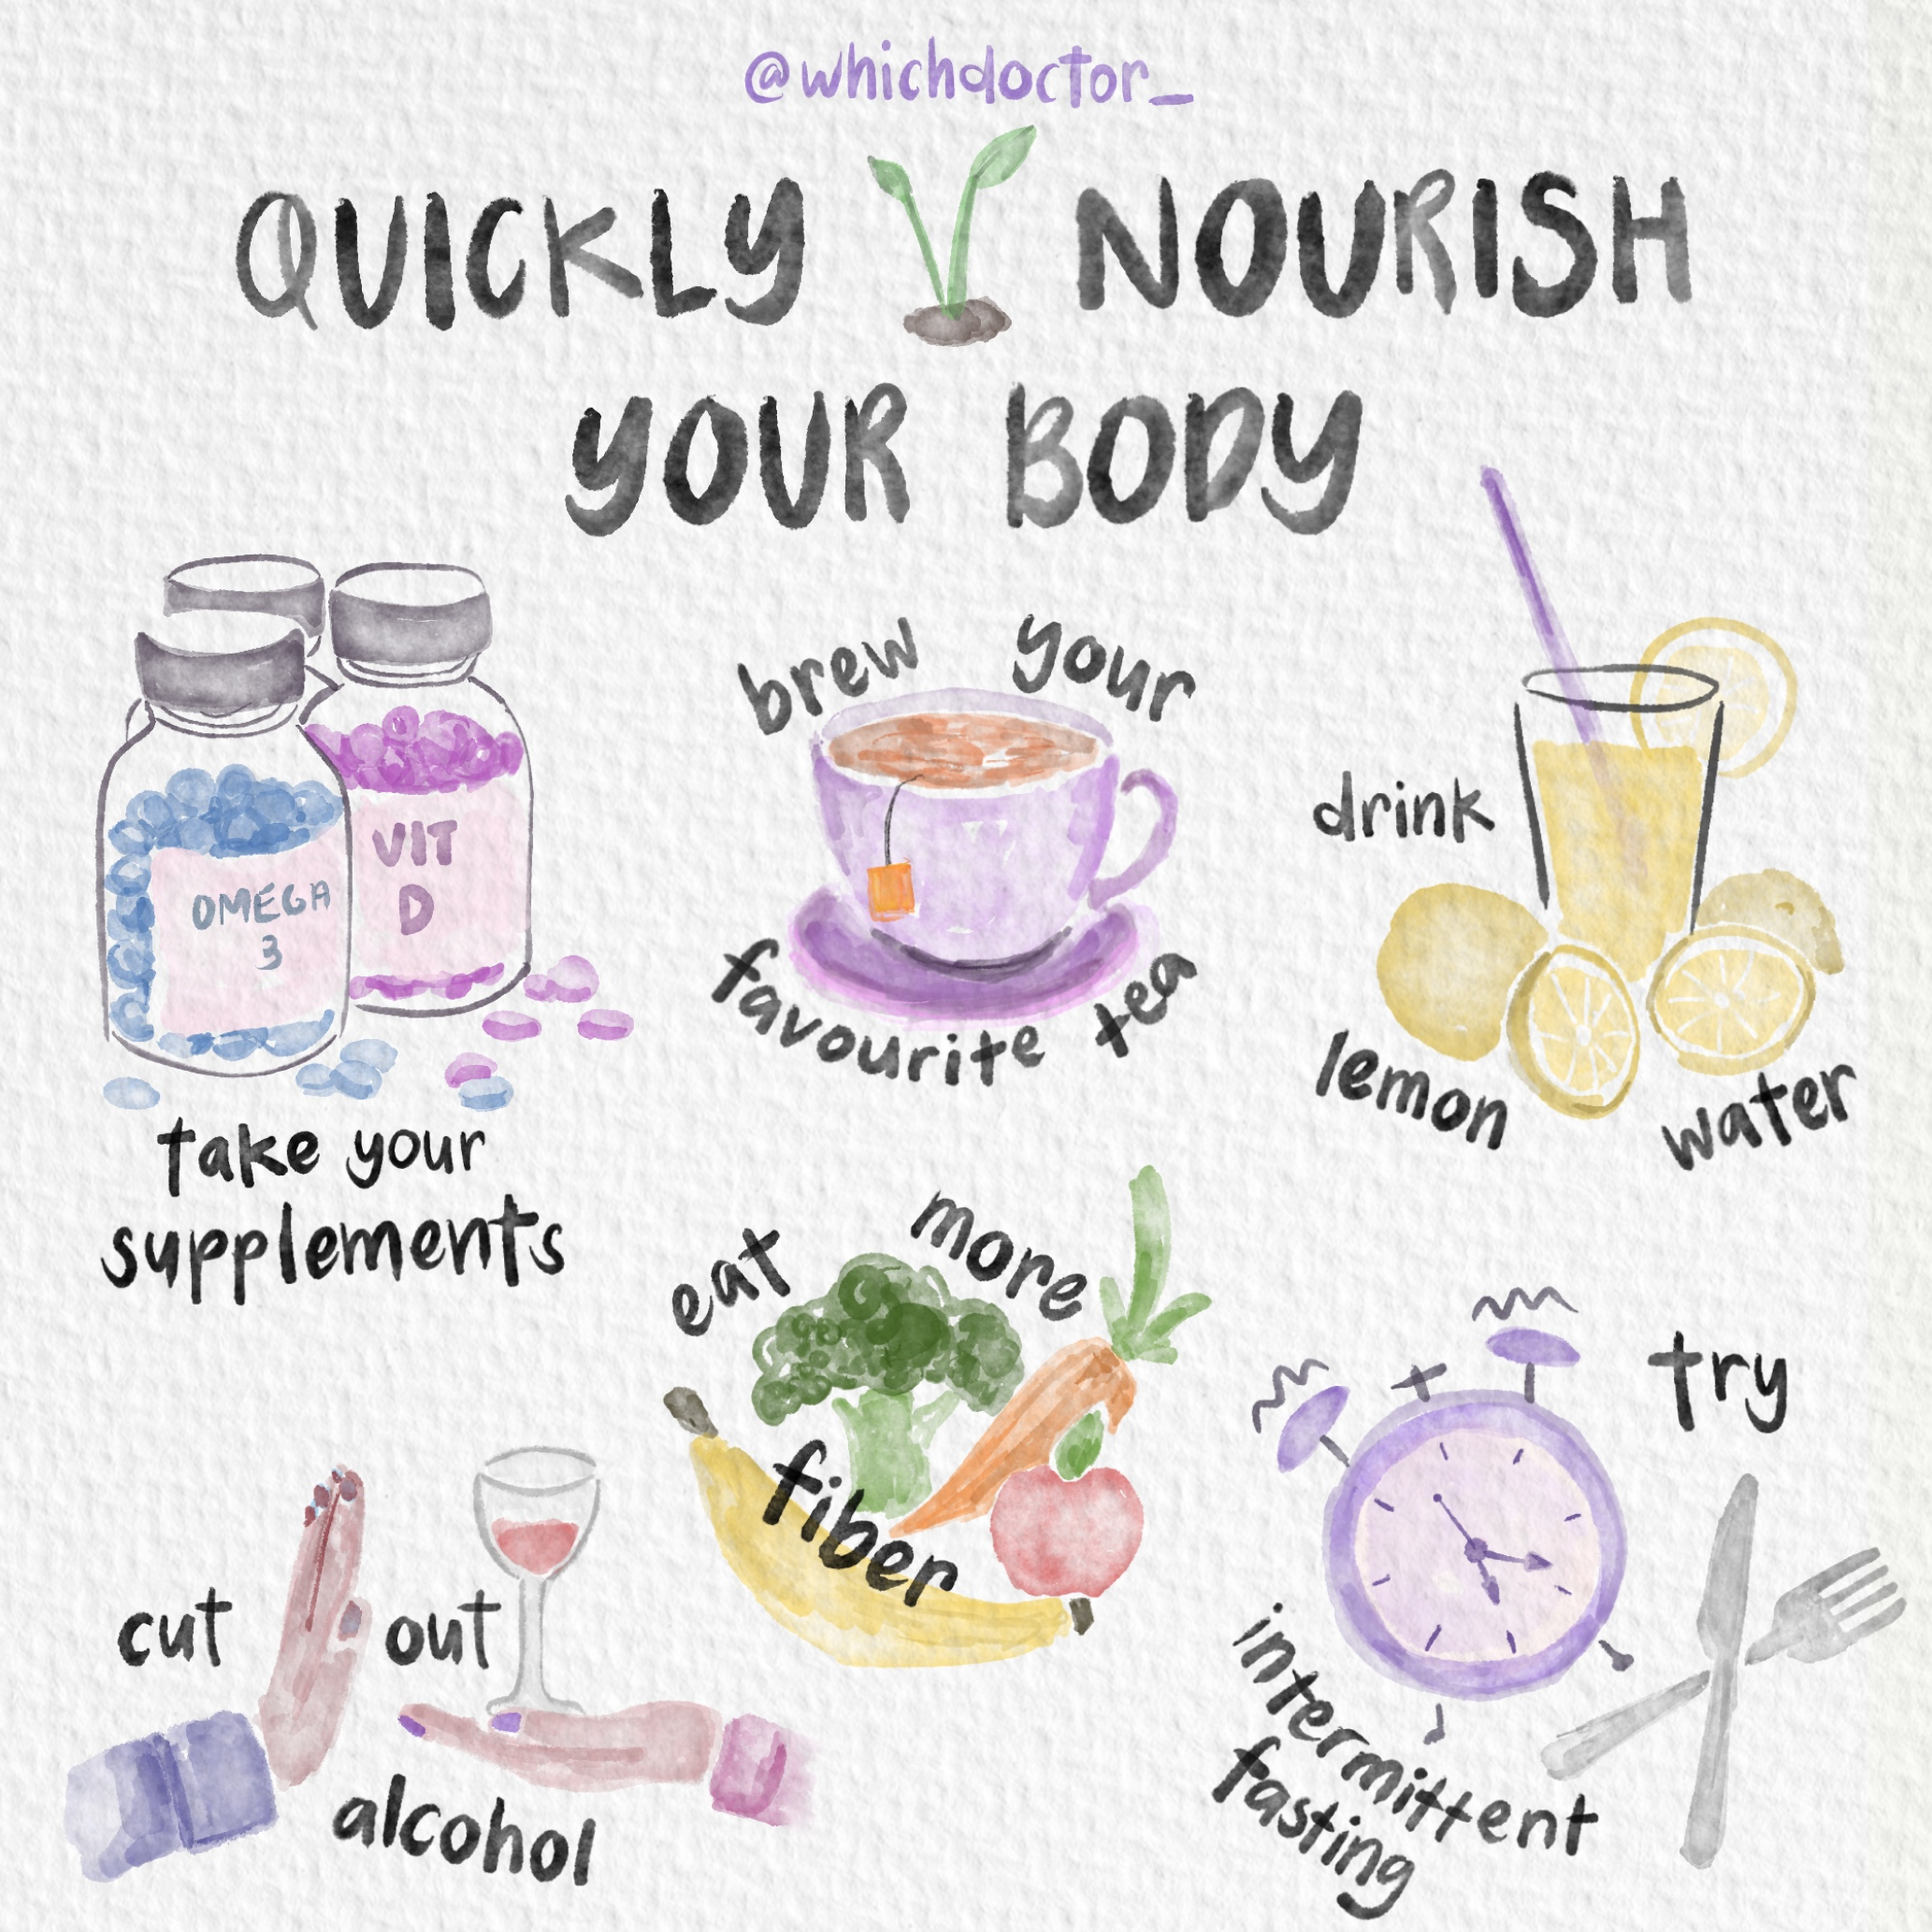 @whichdoctor_
QUICKLY NOURISH
YOUR BODY
OMEGA
3
VIT
D
take your
supplements
brew your
favourite tea
drink
lemon water
eat more
fiber
cut out
alcohol
try
intermittent
fasting